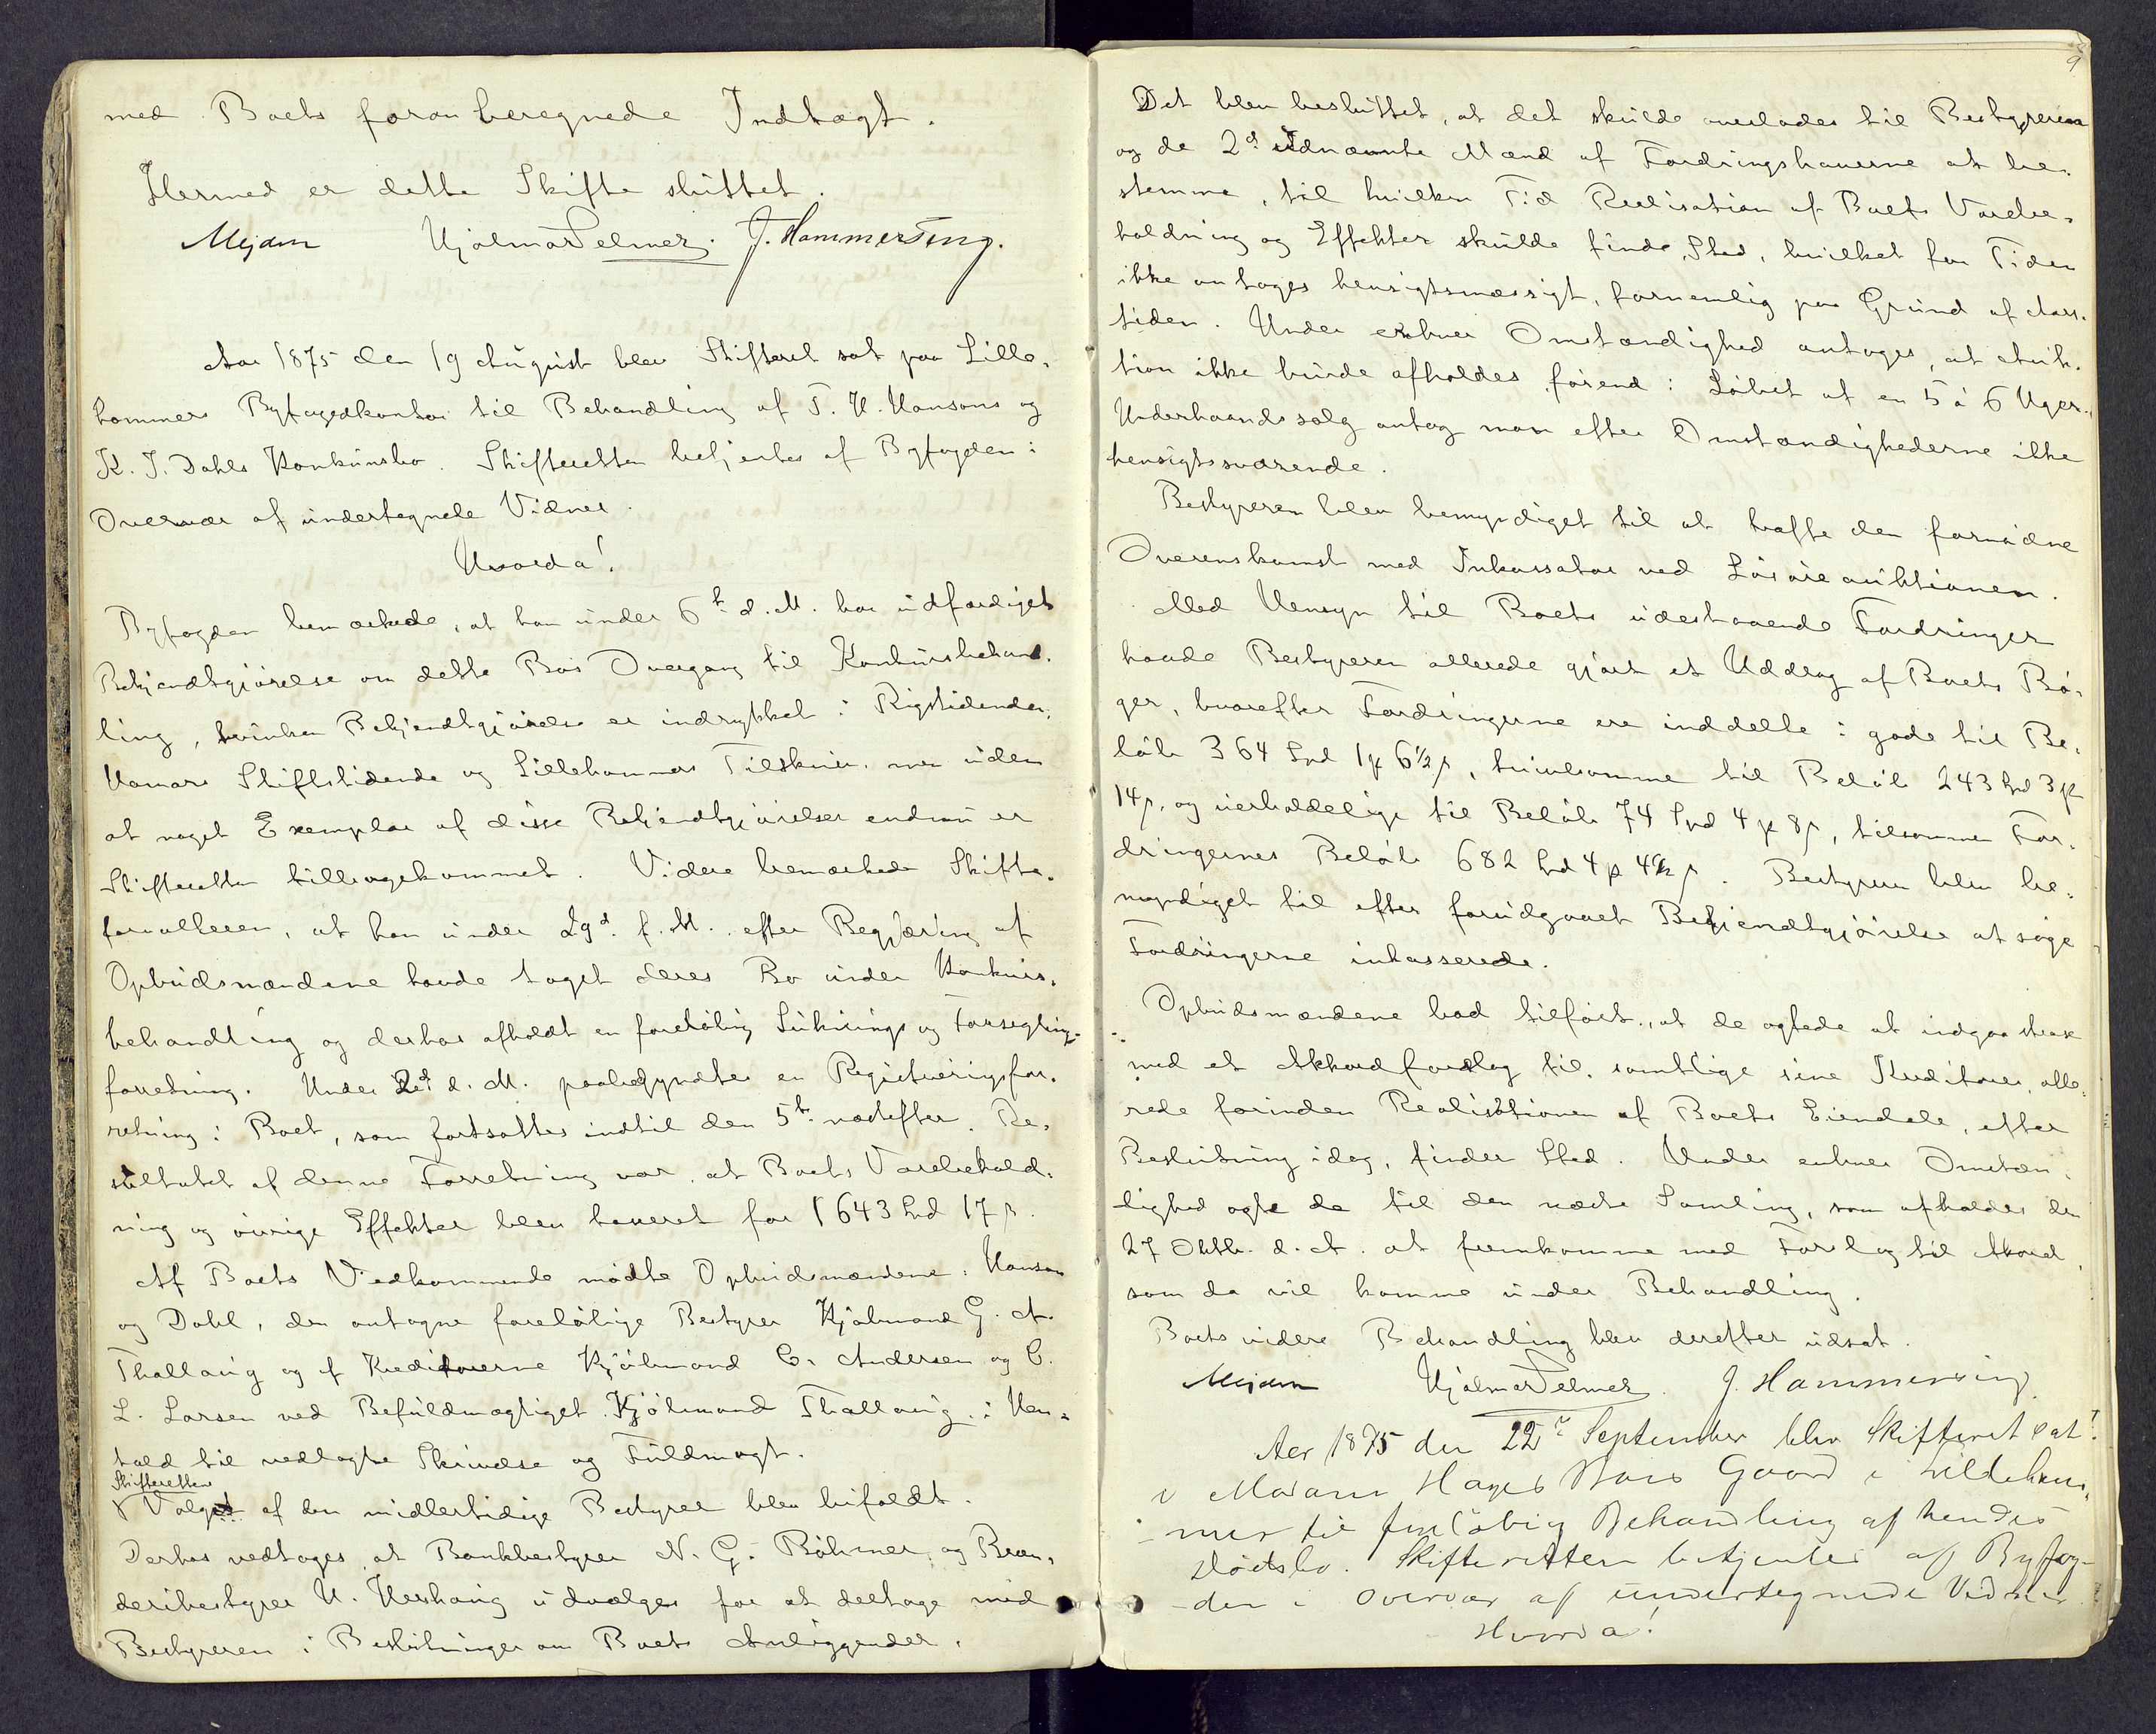 med Boets foran beregnede Indtægt.
Hermed er dette Skifte sluttet.
Mejdell Hjalmar Selmer. J. Hammerseng.
Aar 1875 den 19 August blev Skifteret sat paa Lille-
hammers Byfogedkontor til Behandling af T. H. Hansens og
K. J. Dahls Konkursbo. Skifteretten betjentes af Byfogden i
Overvær af undertegnede Vidner.
Hvorda!
Byfogden bemærkede, at han under 6te d. M. har udfærdiget
Bekjendtgjørelse om dette Bos Overgang til Konkursbehand-
ling, hvilken Bekjendtgjørelse er indrykket i Rigstidenden,
Hamars Stiftstidende og Lillehammers Tilskuer, men uden
at noget Exemplar af disse Bekjendtgjørelser endnu er
Skifteretten tilbagekommet. Videre bemærkede Skifte-
forvalteren, at han under 29d. f. M. efter Begjæring af
Opbudsmændene havde taget deres Bo under Konkurs-
behandling og derhos afholdt en foreløbig Luknings og Forseglings-
forretning. Under 2d d. M. paabegyndtes en Registreringsfor-
retning i Boet, som fortsattes indtil den 5te næstefter. Re-
sultatet af denne Forretning var, at Boets Varebehold-
ning og øvrige Effekter blev taxeret for 1643 Spd 17 s.
Af Boets Vedkommende mødte Opbudsmændene: Hansen
og Dahl, den antagne foreløbige Bestyrer Kjøbmand G. A.
Thallaug og af Kreditorerne Kjøbmand C. Andersen og C.
L. Larsen ved Befuldmægtiget Kjøbmand Thallaug, i Hen-
hold til vedlagte Skrivelse og Fuldmagt.
Skifterettens
Valget af den midlertidige Bestyrer blev bifaldt.
Derhos vedtoges, at Bankbestyrer N. G. Böhmer og Bræn-
deribestyrer H. Hershaug udvælges for at deltage med
Bestyreren i Beslutninger om Boets Anliggender.
9
Det blev besluttet, at det skulde overlades til Bestyreren
og de 2d udnævnte Mænd af Fordringshaverne at be-
stemme, til hvilken Tid Realisation af Boets Varebe-
holdning og Effekter skulde finde Sted, hvilket for Tiden
ikke antages hensigtsmæssigt, fornemlig paa Grund af Aars-
tiden. Under enhver Omstændighed antoges, at Auk-
tion ikke burde afholdes førend i Løbet af en 5 à 6 Uger.
Underhaandssalg antog man efter Omstændighederne ikke
hensigtssvarende.
Bestyreren blev bemyndiget til at træffe den fornødne
Overenskomst med Inkassator ved Løsøreauktionen.
Med Hensyn til Boets udestaaende Fordringer
havde Bestyreren allerede gjort et Uddrag af Boets Bø-
ger, hvorefter Fordringerne ere inddelte i gode til Be-
løb 364 Spd 1 # 6½ s, tvivlsomme til Beløb 243 Spd 3 #
14 s, og uerholdelige til Beløb 74 Spd 4 # 8 s, tilsammen For-
dringernes Beløb 682 Spd 4 # 4½ s. Bestyreren blev be-
myndiget til efter forudgaaet Bekjendtgjørelse at søge
Fordringerne inkasserede.
Opbudsmændene bad tilført, at de agtede at indgaa strax
med et Akkordforslag til samtlige sine Kreditorer, alle-
rede forinden Realisationen af Boets Eiendele, efter
Beslutning idag, finder Sted. Under enhver Omstæn-
lighed agte de til den næste Samling, som afholdes den
27 Oktbr. d. A. at fremkomme med Forslag til Akkord,
som da vil komme under Behandling.
Boets videre Behandling blev derefter udsat.
Mejdell Hjalmar Selmer. J. Hammerseng
Aar 1875 den 22de September blev Skifteret sat
i Madame Hages Boes Gaard i Lilleham-
mer til foreløbig Behandling af hendes
Dødsbo. Skifteretten betjentes af Byfog-
den i Overvær af undertegnede Vidner
Hvorda!